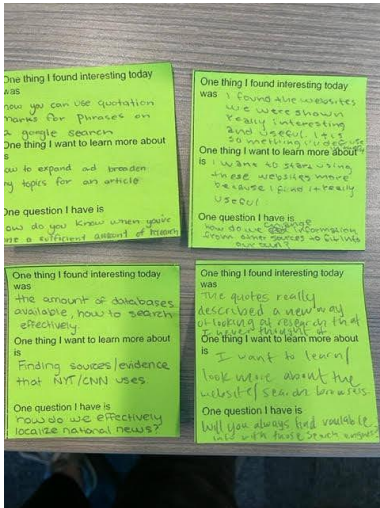 One thing I found interesting today
was
how you can use quotation
marks for phrases on
a google search
One thing I want to learn more about
is
how to expand ad broaden
my topics for an article
One question I have is
how do you know when you've
use a sufficient amount of research
One thing I found interesting today
was I found the websites
we were shown
really interesting
and useful. It is
something I'd
One thing I want to learn more about
is I want to start using
these websites more
because I find it really
useful
One question I have is
how do we change information
from other sources to fit into
our own?
One thing I found interesting today
was
the amount of databases
available, how to search
effectively.
One thing I want to learn more about
is
Finding sources/evidence
that NYT/CNN uses.
One question I have is
how do we effectively
localize national news?
One thing I found interesting today
was
The quotes really
described a new way
of looking at research that
I never thought of
One thing I want to learn more about
is
I want to learn/
look more about the
website/search browsers.
One question I have is
Will you always find valuable
info with these search engines?